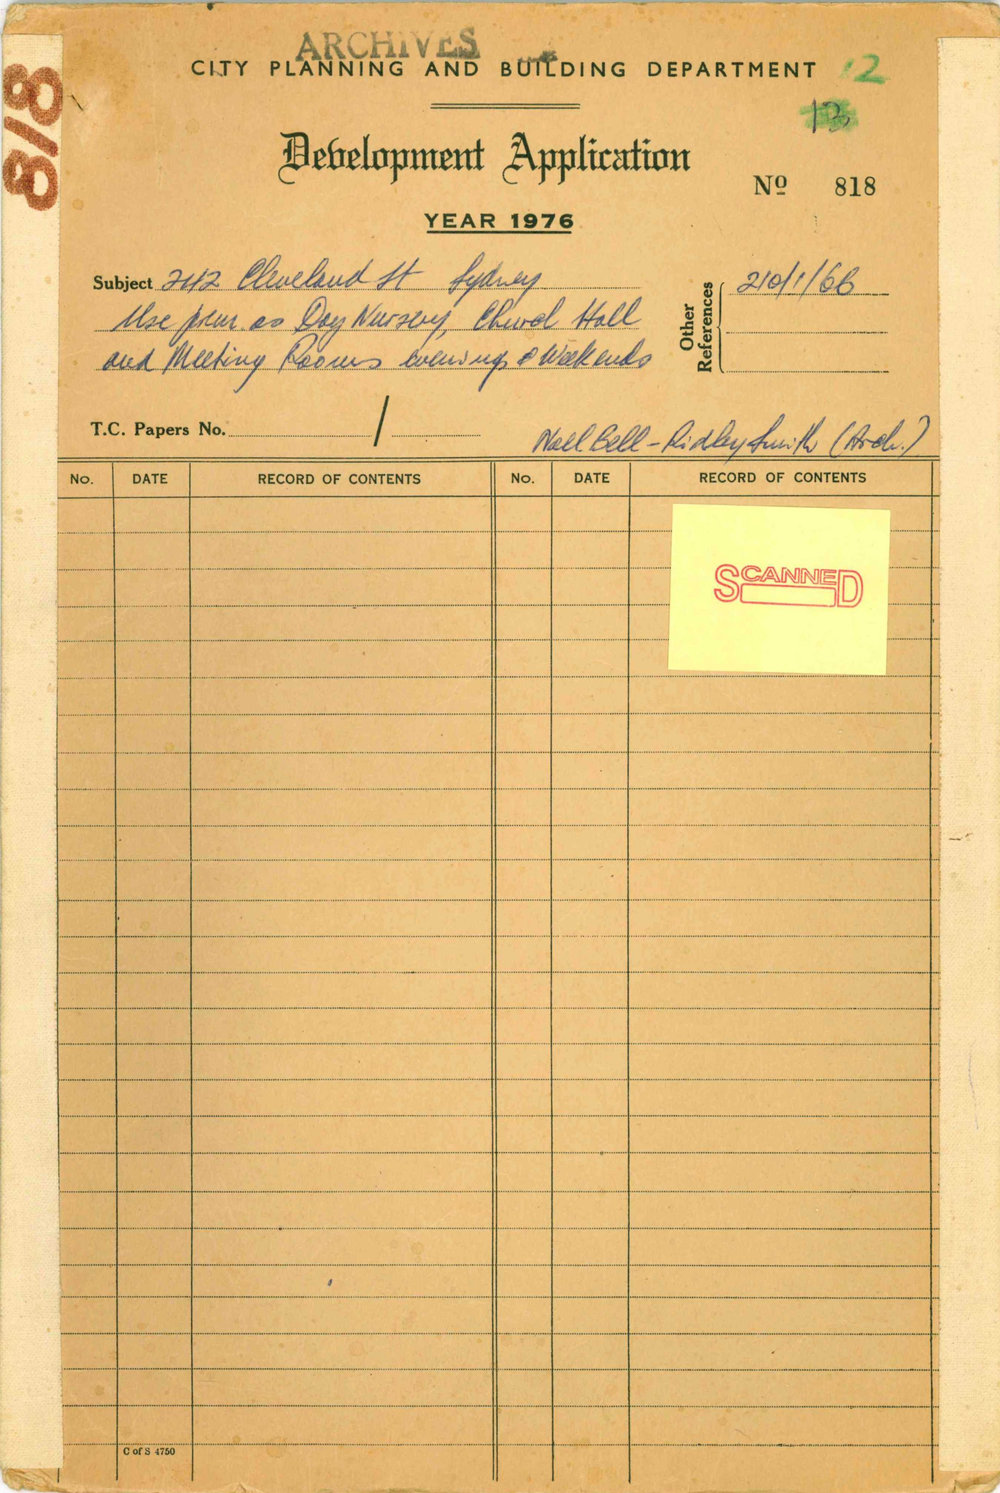 818
ARCHIVES
CITY PLANNING AND BUILDING DEPARTMENT
12
13
Development Application
Nº 818
YEAR 1976
Subject 242 Cleveland St Sydney
Use prem as Day Nursery, Church Hall
and Meeting Rooms evenings & Weekends
Other References
210/1/66
T.C. Papers No. /
Noel Bell - Ridley Smith (Arch.)
No. DATE RECORD OF CONTENTS No. DATE RECORD OF CONTENTS
SCANNED
C of S 4750